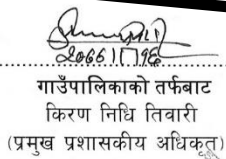 गाउँपालिकाको तर्फबाट
किरण निधि तिवारी
(प्रमुख प्रशासकीय अधिकृत)